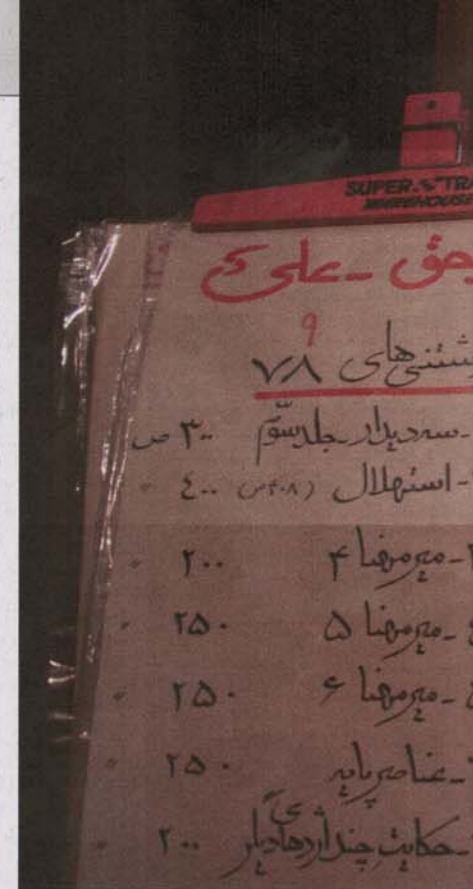 SUPER
WAREHOUSE
حق - علی
۹
نوشتنی‌های ۷۸
- سه دیدار - جلد سوّم ۳۰۰ ص
- استهلال (۴۰۸ ص) ۴۰۰ "
- میرمهنا ۴ ۲۰۰ "
- میرمهنا ۵ ۲۵۰ "
- میرمهنا ۶ ۲۵۰ "
- عناصر پایه ۲۵۰ "
- حکایت چند اژدهای ۲۰۰ "